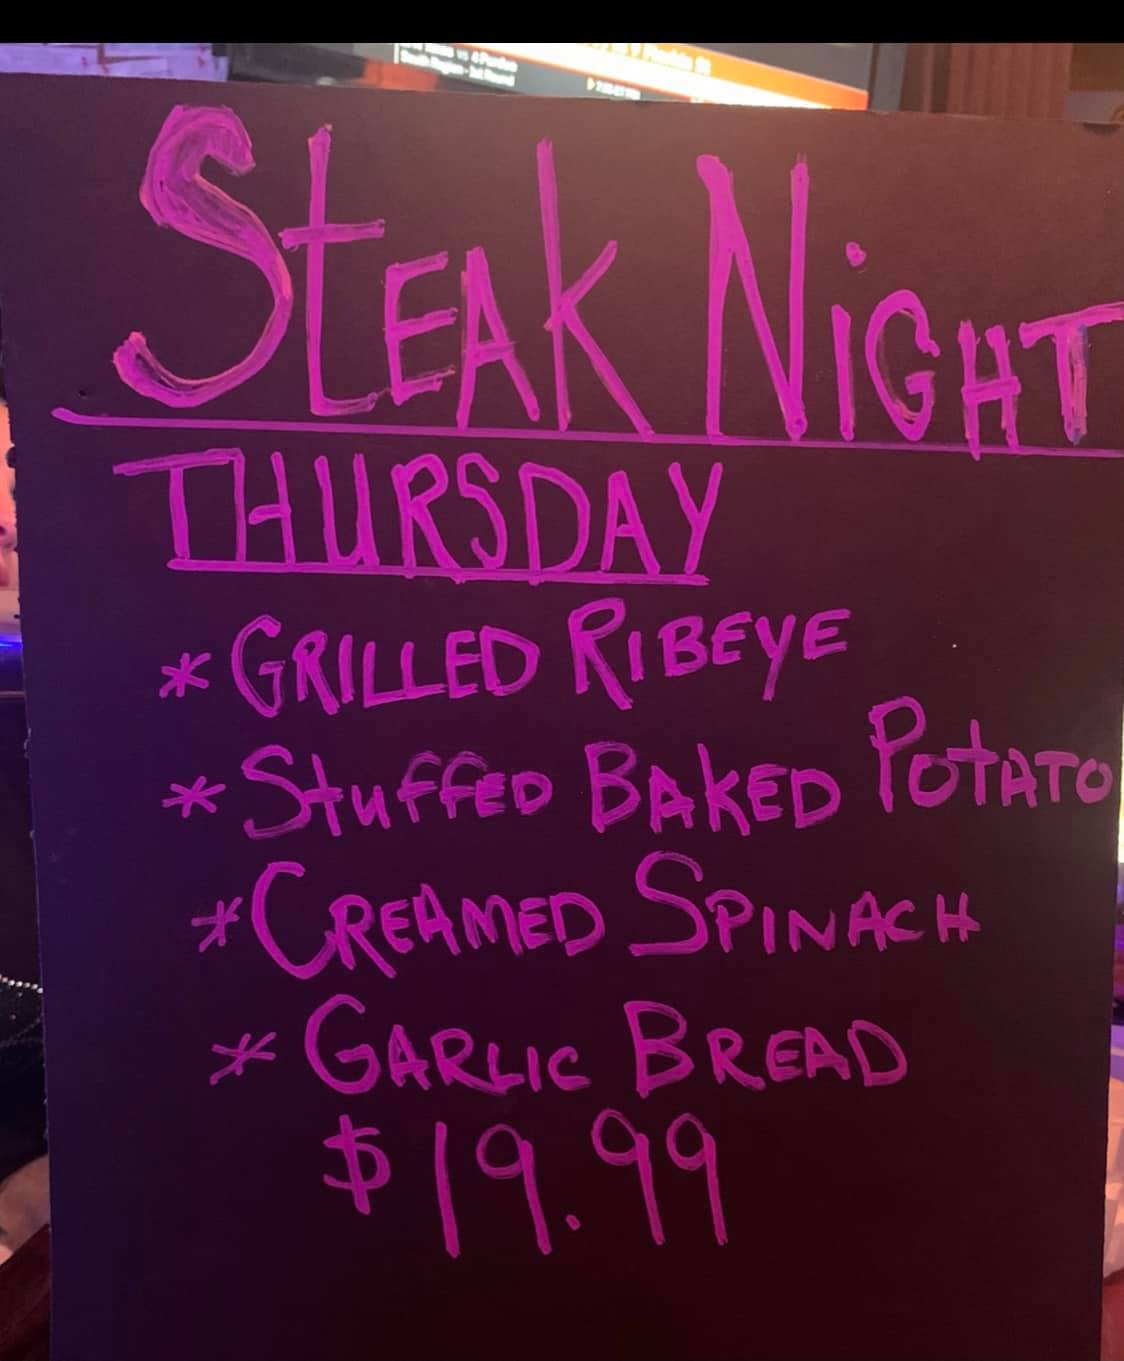 Steak Night
Thursday
* Grilled Ribeye
* Stuffed Baked Potato
* Creamed Spinach
* Garlic Bread
$19.99